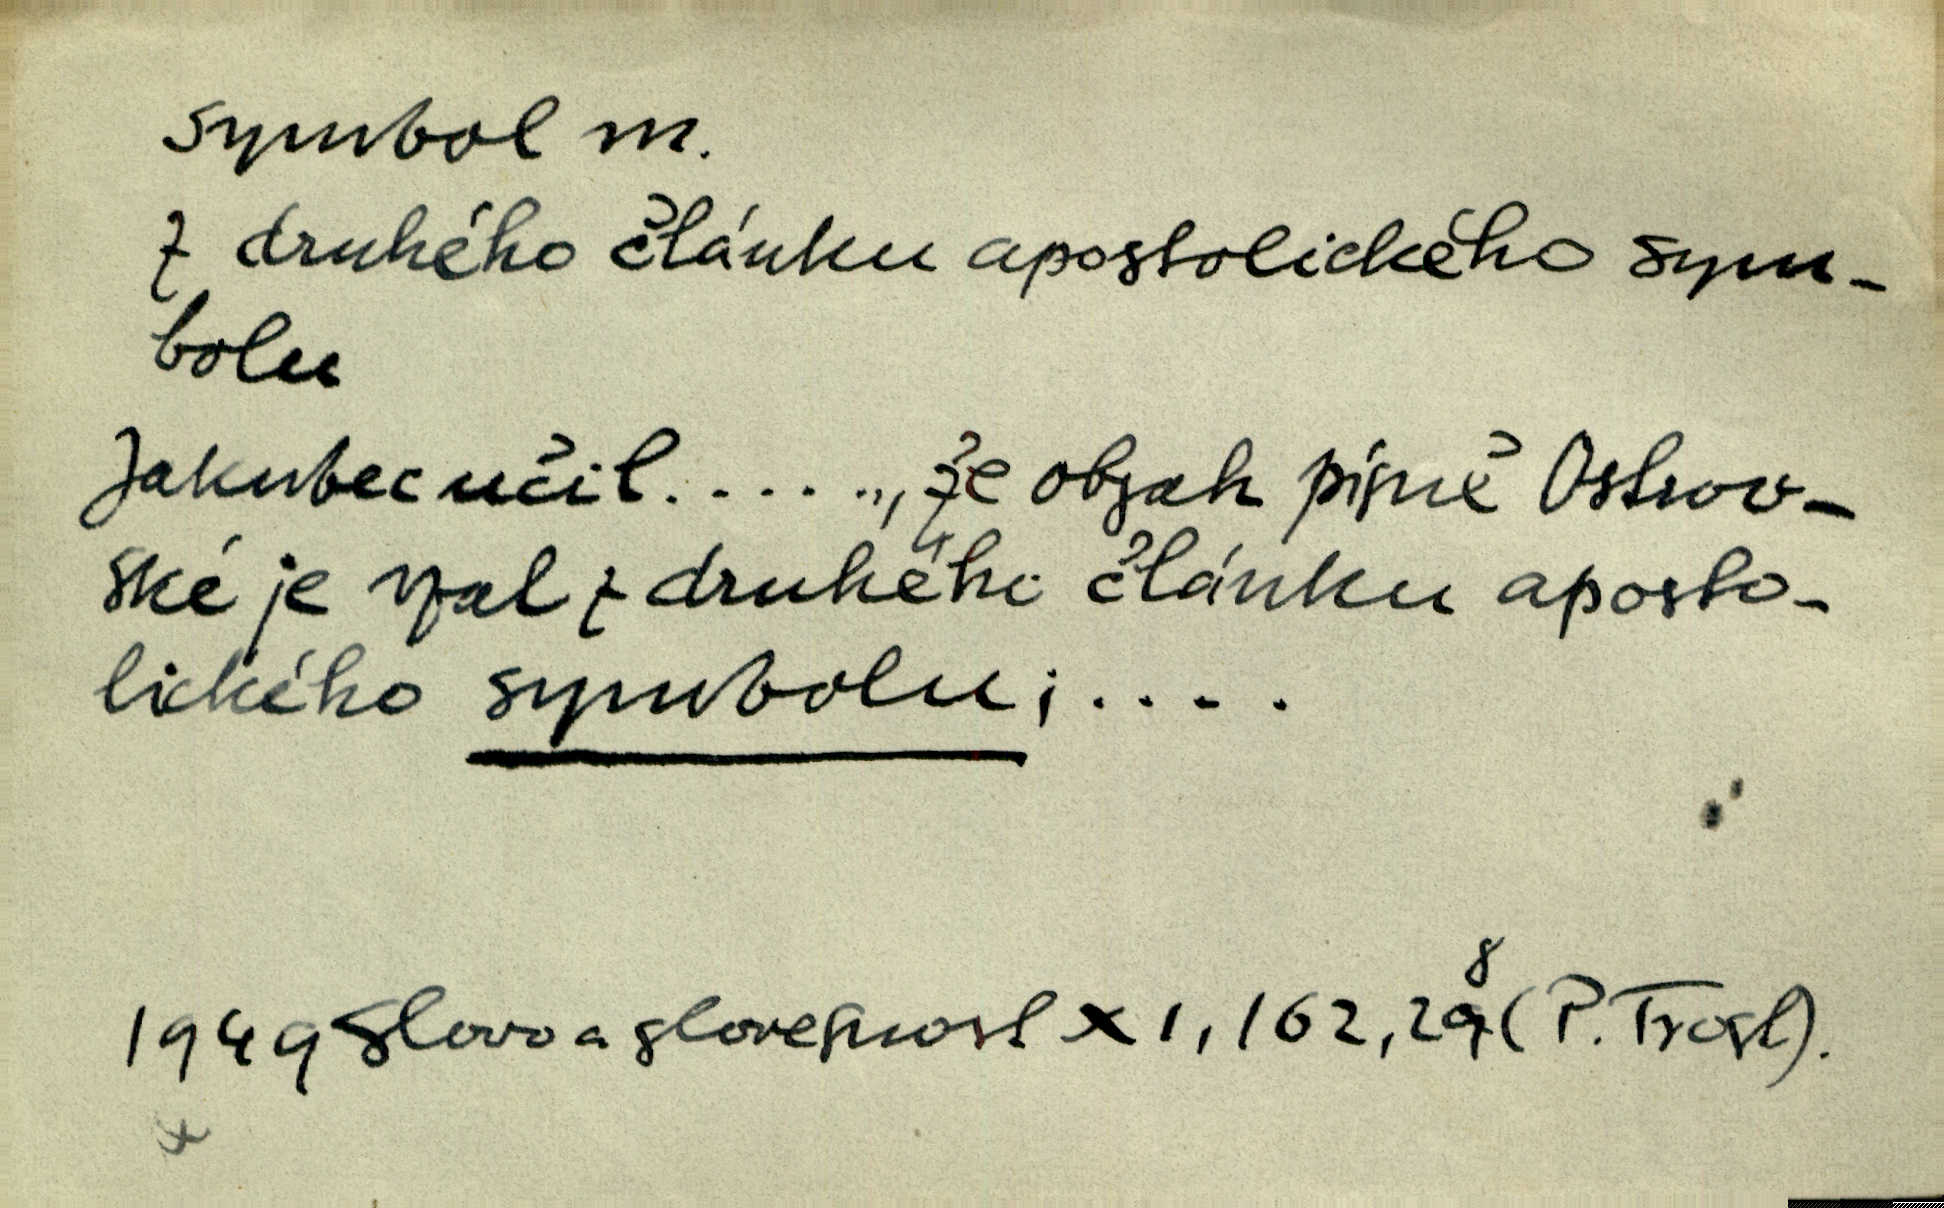 symbol m.
z druhého článku apostolického sym-
bolu
Jakubec učil......, že obsah písně Ostrov-
ské je vzal z druhého článku aposto-
lického symbolu; ....
1949 Slovo a slovesnost XI, 162, 28 (P. Trost).
x